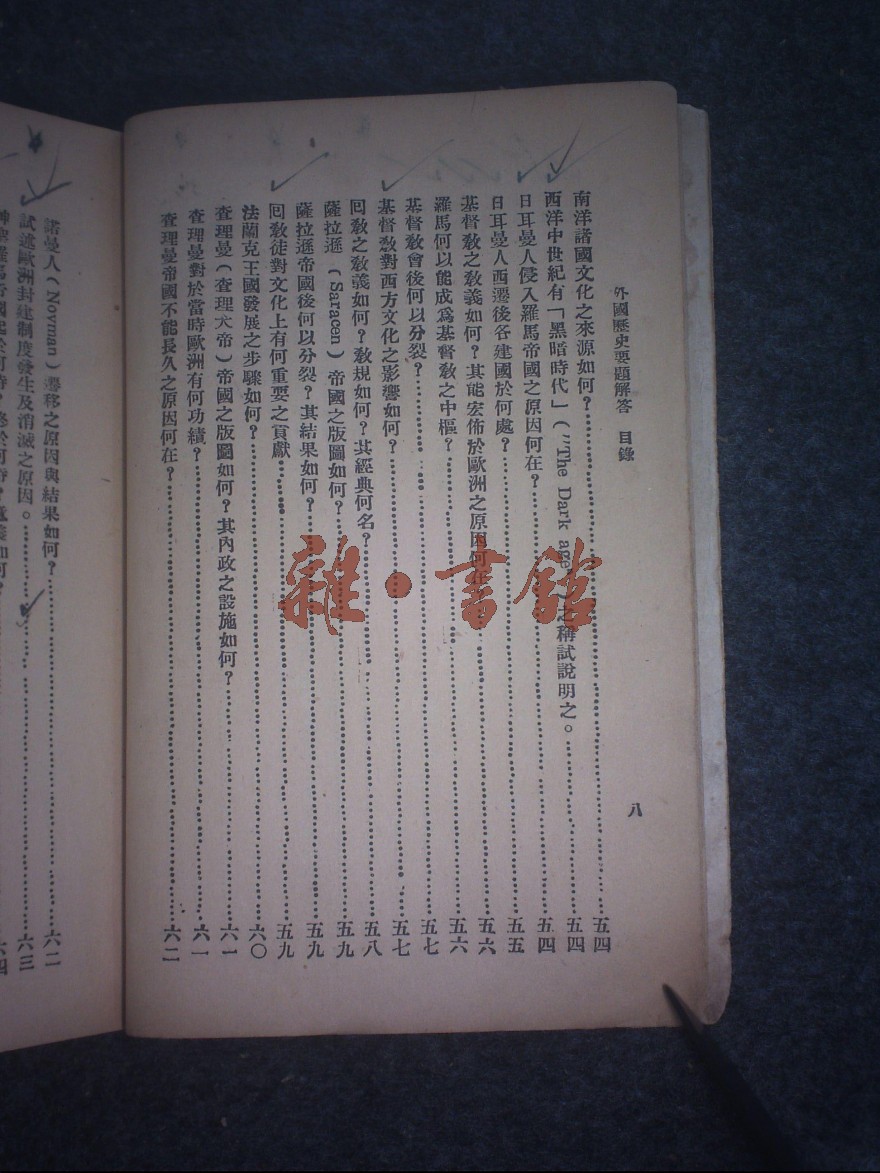 外國歷史要題解答 目錄
八
南洋諸國文化之來源如何？……五四
西洋中世紀有「黑暗時代」（"The Dark age"）之稱試說明之。……五四
日耳曼人侵入羅馬帝國之原因何在？……五四
日耳曼人西遷後各建國於何處？……五五
基督敎之敎義如何？其能宏佈於歐洲之原因何在……五六
羅馬何以能成爲基督敎之中樞？……五六
基督敎會後何以分裂？……五七
基督敎對西方文化之影響如何？……五七
回敎之敎義如何？敎規如何？其經典何名？……五八
薩拉遜（Saracen）帝國之版圖如何？……五九
薩拉遜帝國後何以分裂？其結果如何？……五九
回敎徒對文化上有何重要之貢獻……五九
法蘭克王國發展之步驟如何？……六〇
查理曼（查理大帝）帝國之版圖如何？其內政之設施如何？……六一
查理曼對於當時歐洲有何功績？……六一
查理曼帝國不能長久之原因何在？……六二
諾曼人（Novman）遷移之原因與結果如何？……六二
試述歐洲封建制度發生及消滅之原因。……六三
雜·書館